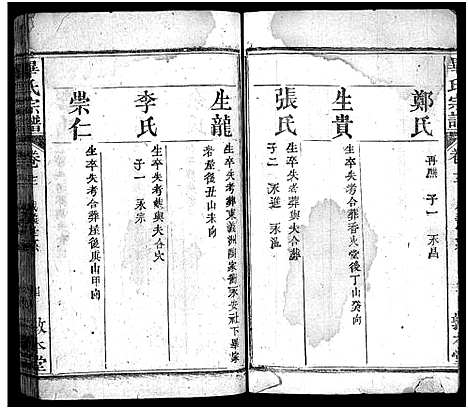 鄭氏
再醮 子一 永昌
生貴
生卒失考合葬香火堂後丁山癸向
張氏
生卒失考葬與夫合葬
子二 永進 永昌
生龍
生卒失考葬東義洲陶家衝永安社下畢家
老屋後丑山未向
李氏
生卒失考葬與夫合穴
子一 永宗
崇仁
生卒失考合葬屋後庚山甲向
畢氏宗譜
卷
敦本堂